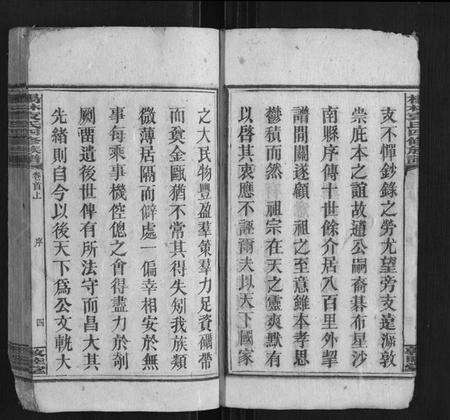 支不憚鈔錄之勞尤望旁支遠
崇庇本之誼故通公嗣裔碁布星沙
南縣序傳十世餘介居八百里外挈
譜閒關遂顧 祖之至意維本孝思
鬱積而然 祖宗在天之靈爽默有
以啓其衷應不誣爾夫以天下國家
之大民物豐盈羣策羣力足資礪帶
而奠金甌猶不常其得失矧我族類
微薄居隔而僻處一偏幸相安於無
事每乘事機倥傯之會得盡力於剞
劂畱遺後世俾有所法守而昌大其
先緒則自今以後天下爲公文軌大
卷首上
序
四